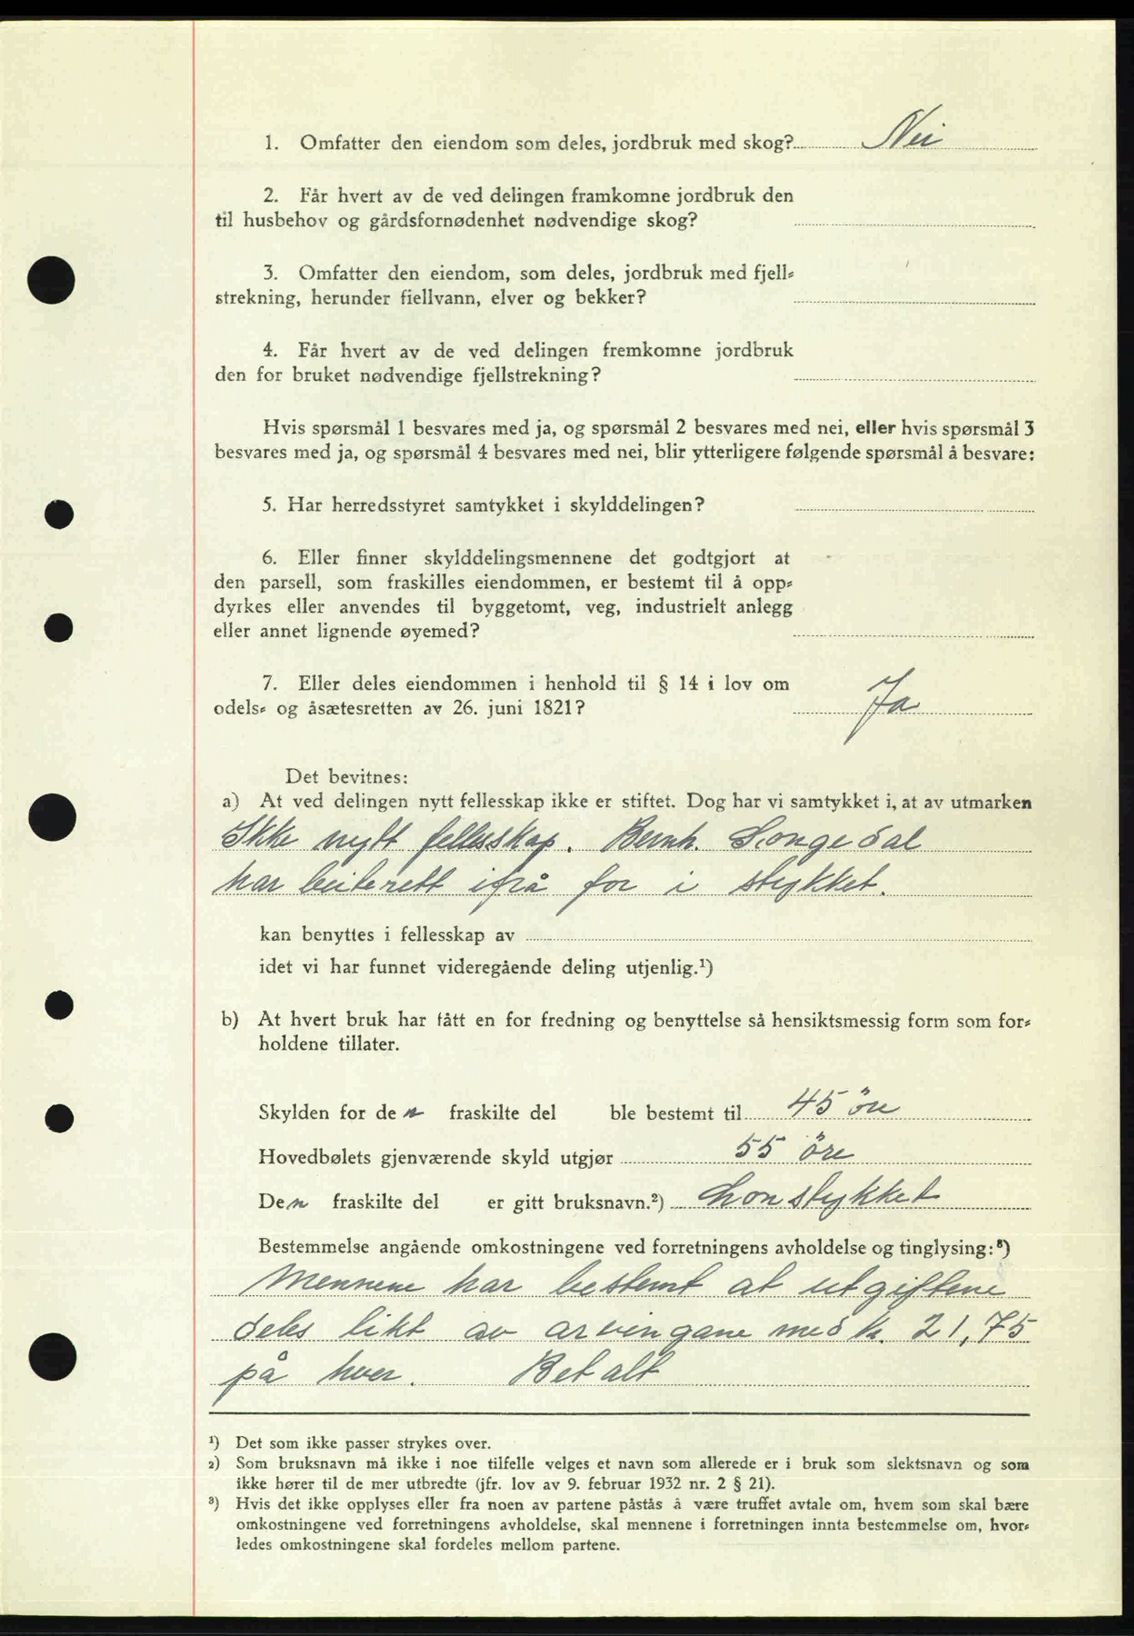 1. Omfatter den eiendom som deles, jordbruk med skog? Nei
2. Får hvert av de ved delingen framkomne jordbruk den
til husbehov og gårdsfornødenhet nødvendige skog?
3. Omfatter den eiendom, som deles, jordbruk med fjell-
strekning, herunder fiellvann, elver og bekker?
4. Får hvert av de ved delingen fremkomne jordbruk
den for bruket nødvendige fjellstrekning?
Hvis spørsmål 1 besvares med ja, og spørsmål 2 besvares med nei, eller hvis spørsmål 3
besvares med ja, og spørsmål 4 besvares med nei, blir ytterligere følgende spørsmål å besvare:
5. Har herredsstyret samtykket i skylddelingen?
6. Eller finner skylddelingsmennene det godtgjort at
den parsell, som fraskilles eiendommen, er bestemt til å opp-
dyrkes eller anvendes til byggetomt, veg, industrielt anlegg
eller annet lignende øyemed?
7. Eller deles eiendommen i henhold til § 14 i lov om
odels- og åsætesretten av 26. juni 1821? Ja
Det bevitnes:
a) At ved delingen nytt fellesskap ikke er stiftet. Dog har vi samtykket i, at av utmarken
Ikke nytt fellesskap. Bernh. Songedal
har beiterett ifrå før i stykket.
kan benyttes i fellesskap av
idet vi har funnet videregående deling utjenlig.¹)
b) At hvert bruk har fått en for fredning og benyttelse så hensiktsmessig form som for-
holdene tillater.
Skylden for den fraskilte del ble bestemt til 45 öre
Hovedbølets gjenværende skyld utgjør 55 öre
Den fraskilte del er gitt bruksnavn.²) Lonstykket
Bestemmelse angående omkostningene ved forretningens avholdelse og tinglysing:³)
Mennene har bestemt at utgiftene
deles likt av arvingane med k. 21,75
på hver. Betalt
¹) Det som ikke passer strykes over.
²) Som bruksnavn må ikke i noe tilfelle velges et navn som allerede er i bruk som slektsnavn og som
ikke hører til de mer utbredte (jfr. lov av 9. februar 1932 nr. 2 § 21).
³) Hvis det ikke opplyses eller fra noen av partene påstås å være truffet avtale om, hvem som skal bære
omkostningene ved forretningens avholdelse, skal mennene i forretningen innta bestemmelse om, hvor-
ledes omkostningene skal fordeles mellom partene.